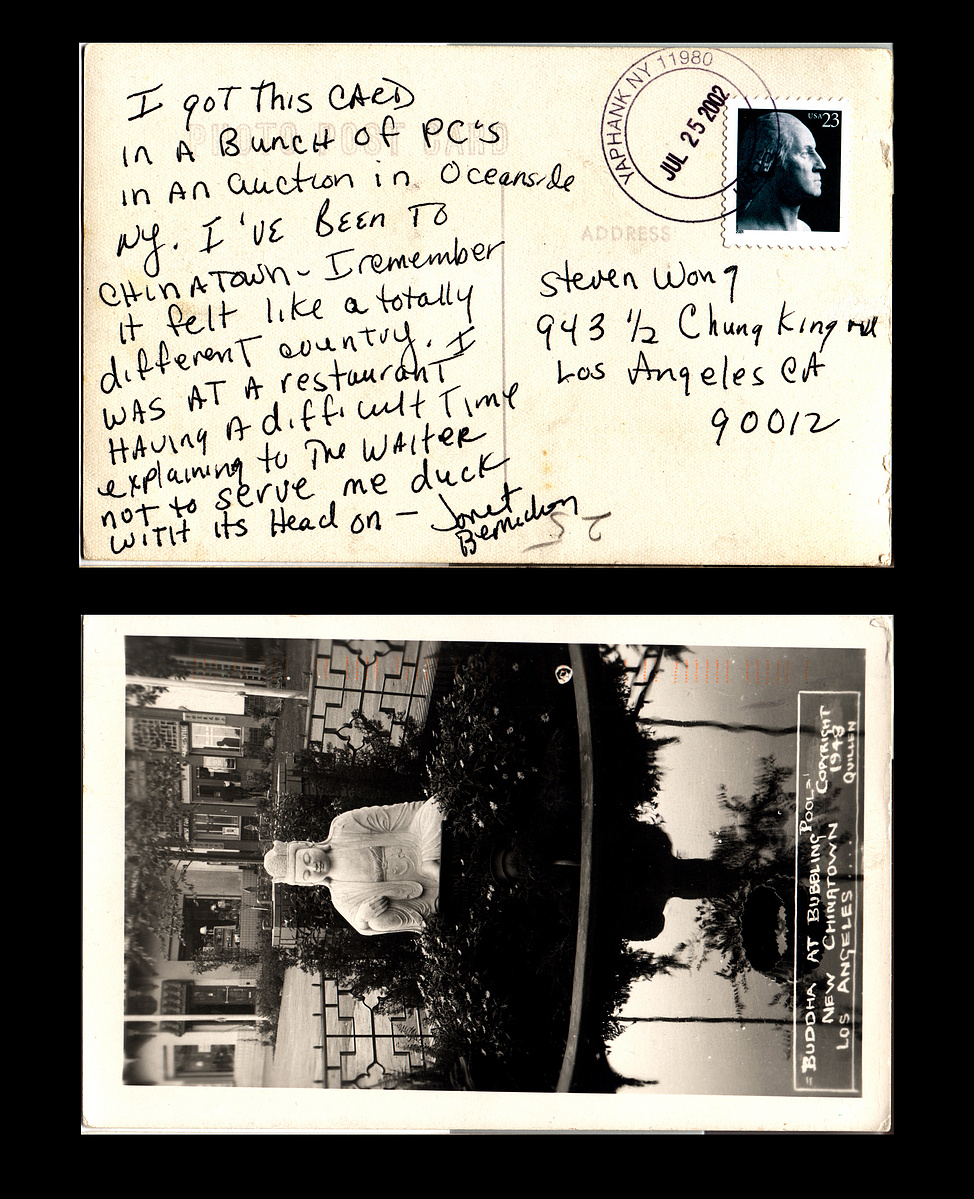 I got This CARD
in A Bunch of PC's
in An auction in Oceanside
NY. I'VE BEEN TO
CHINATOwn- I remember
it felt like a totally
different country. I
WAS AT A restaurant
HAVING A difficult Time
explaining to The WAITER
not to serve me duck
WITH its Head on — Janet
PHOTO POST CARD
YAPHANK NY 11980
JUL 25 2002
USA 23
ADDRESS
Steven Wong
943 1/2 Chung King
Los Angeles CA
90012
"BUDDHA AT BUBBLING POOL"
NEW CHINATOWN COPYRIGHT 1948
LOS ANGELES .... QUILLEN